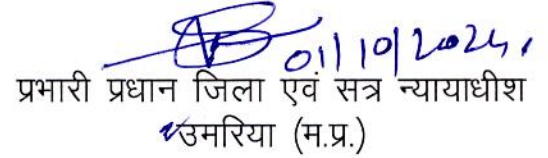 01/10/2024
प्रभारी प्रधान जिला एवं सत्र न्यायाधीश
उमरिया (म.प्र.)